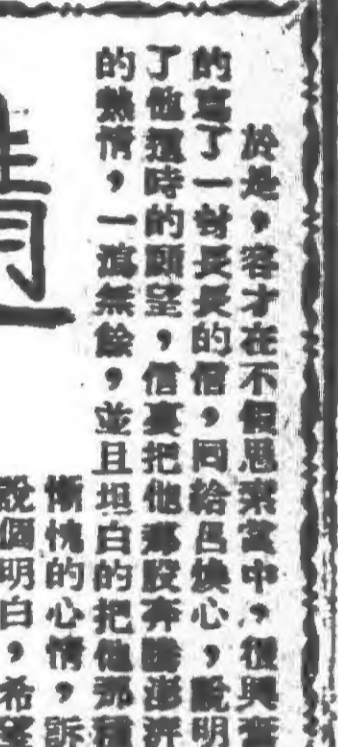 於是，容才在不假思索當中，很興奮
的寫了一封長長的信，回給呂煥心，說明
了他這時的願望，信裏把他那股奔騰澎湃
的熱情，一瀉無餘，並且坦白的把他那種
慚愧的心情，訴
說個明白，希望